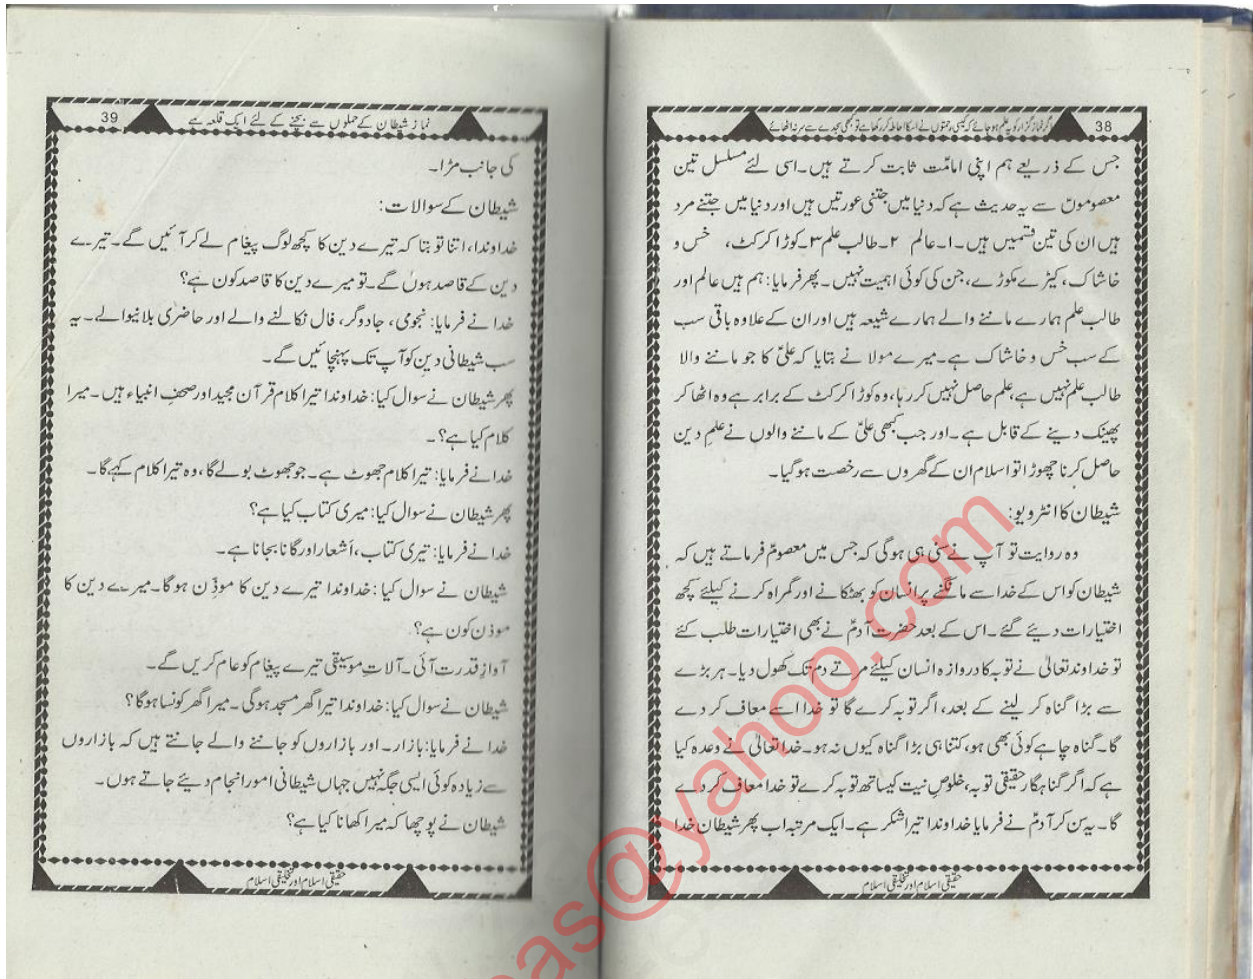 38
اگر نماز گزار کو یہ علم ہو جائے کہ کیسی رحمتوں نے اسکا احاطہ کر رکھا ہے تو کبھی سجدے سے سر نہ اٹھائے
جس کے ذریعے ہم اپنی امامّت ثابت کرتے ہیں۔ اسی لئے مسلسل تین
معصوموںؑ سے یہ حدیث ہے کہ دنیا میں جتنی عورتیں ہیں اور دنیا میں جتنے مرد
ہیں ان کی تین قسمیں ہیں۔ ۱۔ عالم ۲۔ طالب علم ۳۔ کوڑا کرکٹ، خس و
خاشاک، کیڑے مکوڑے، جن کی کوئی اہمیت نہیں۔ پھر فرمایا: ہم ہیں عالم اور
طالب علم ہمارے ماننے والے ہمارے شیعہ ہیں اور ان کے علاوہ باقی سب
کے سب خس و خاشاک ہے۔ میرے مولا نے بتایا کہ علیؑ کا جو ماننے والا
طالب علم نہیں ہے، علم حاصل نہیں کر رہا، وہ کوڑا کرکٹ کے برابر ہے وہ اٹھا کر
پھینک دینے کے قابل ہے۔ اور جب کبھی علیؑ کے ماننے والوں نے علمِ دین
حاصل کرنا چھوڑا تو اسلام ان کے گھروں سے رخصت ہو گیا۔
شیطان کا انٹرویو:
وہ روایت تو آپ نے سنی ہی ہوگی کہ جس میں معصومؑ فرماتے ہیں کہ
شیطان کو اس کے خدا سے مانگنے پر انسان کو بھٹکانے اور گمراہ کرنے کیلئے کچھ
اختیارات دیئے گئے۔ اس کے بعد حضرت آدمؑ نے بھی اختیارات طلب کئے
تو خداوند تعالیٰ نے توبہ کا دروازہ انسان کیلئے مرتے دم تک کھول دیا۔ ہر بڑے
سے بڑا گناہ کر لینے کے بعد، اگر توبہ کرے گا تو خدا اسے معاف کر دے
گا۔ گناہ چاہے کوئی بھی ہو، کتنا ہی بڑا گناہ کیوں نہ ہو۔ خدا تعالیٰ نے وعدہ کیا
ہے کہ اگر گناہگار حقیقی توبہ، خلوصِ نیت کیساتھ توبہ کرے تو خدا معاف کر دے
گا۔ یہ سن کر آدمؑ نے فرمایا خداوندا تیرا شکر ہے۔ ایک مرتبہ اب پھر شیطان خدا
حقیقی اسلام اور تخلیقی اسلام
39
نماز شیطان کے حملوں سے بچنے کے لئے ایک قلعہ ہے
کی جانب مڑا۔
شیطان کے سوالات:
خداوندا، اتنا تو بتا کہ تیرے دین کا کچھ لوگ پیغام لے کر آئیں گے۔ تیرے
دین کے قاصد ہوں گے۔ تو میرے دین کا قاصد کون ہے؟
خدا نے فرمایا: نجومی، جادوگر، فال نکالنے والے اور حاضری بلانیوالے۔ یہ
سب شیطانی دین کو آپ تک پہنچائیں گے۔
پھر شیطان نے سوال کیا: خداوندا تیرا کلام قرآن مجید اور صحفِ انبیاء ہیں۔ میرا
کلام کیا ہے؟۔
خدا نے فرمایا: تیرا کلام جھوٹ ہے۔ جو جھوٹ بولے گا، وہ تیرا کلام کہے گا۔
پھر شیطان نے سوال کیا: میری کتاب کیا ہے؟
خدا نے فرمایا: تیری کتاب، اَشعار اور گانا بجانا ہے۔
شیطان نے سوال کیا: خداوندا تیرے دین کا موذّن ہوگا۔ میرے دین کا
موذن کون ہے؟
آوازِ قدرت آئی۔ آلاتِ موسیقی تیرے پیغام کو عام کریں گے۔
شیطان نے سوال کیا: خداوندا تیرا گھر مسجد ہوگی۔ میرا گھر کونسا ہوگا؟
خدا نے فرمایا: بازار۔ اور بازاروں کو جاننے والے جانتے ہیں کہ بازاروں
سے زیادہ کوئی ایسی جگہ نہیں جہاں شیطانی امور انجام دیئے جاتے ہوں۔
شیطان نے پوچھا کہ میرا کھانا کیا ہے؟
حقیقی اسلام اور تخلیقی اسلام
as@yahoo.com